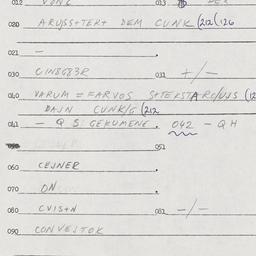 012 VONL 013 DER
020 ARUSS+TER+ DEM CUNK (212(126
021 —
030 CINBGB3R 031 +/—
040 VARUM = FARVOS S+TEKSTARC/UJS (12
DAJN CUNK/G (212
041 — Q S GEKUMENE. 042 — QH
051
060 CEJNER
070 ON
080 CVIS+N 081 —/—
090 CONVESTOK